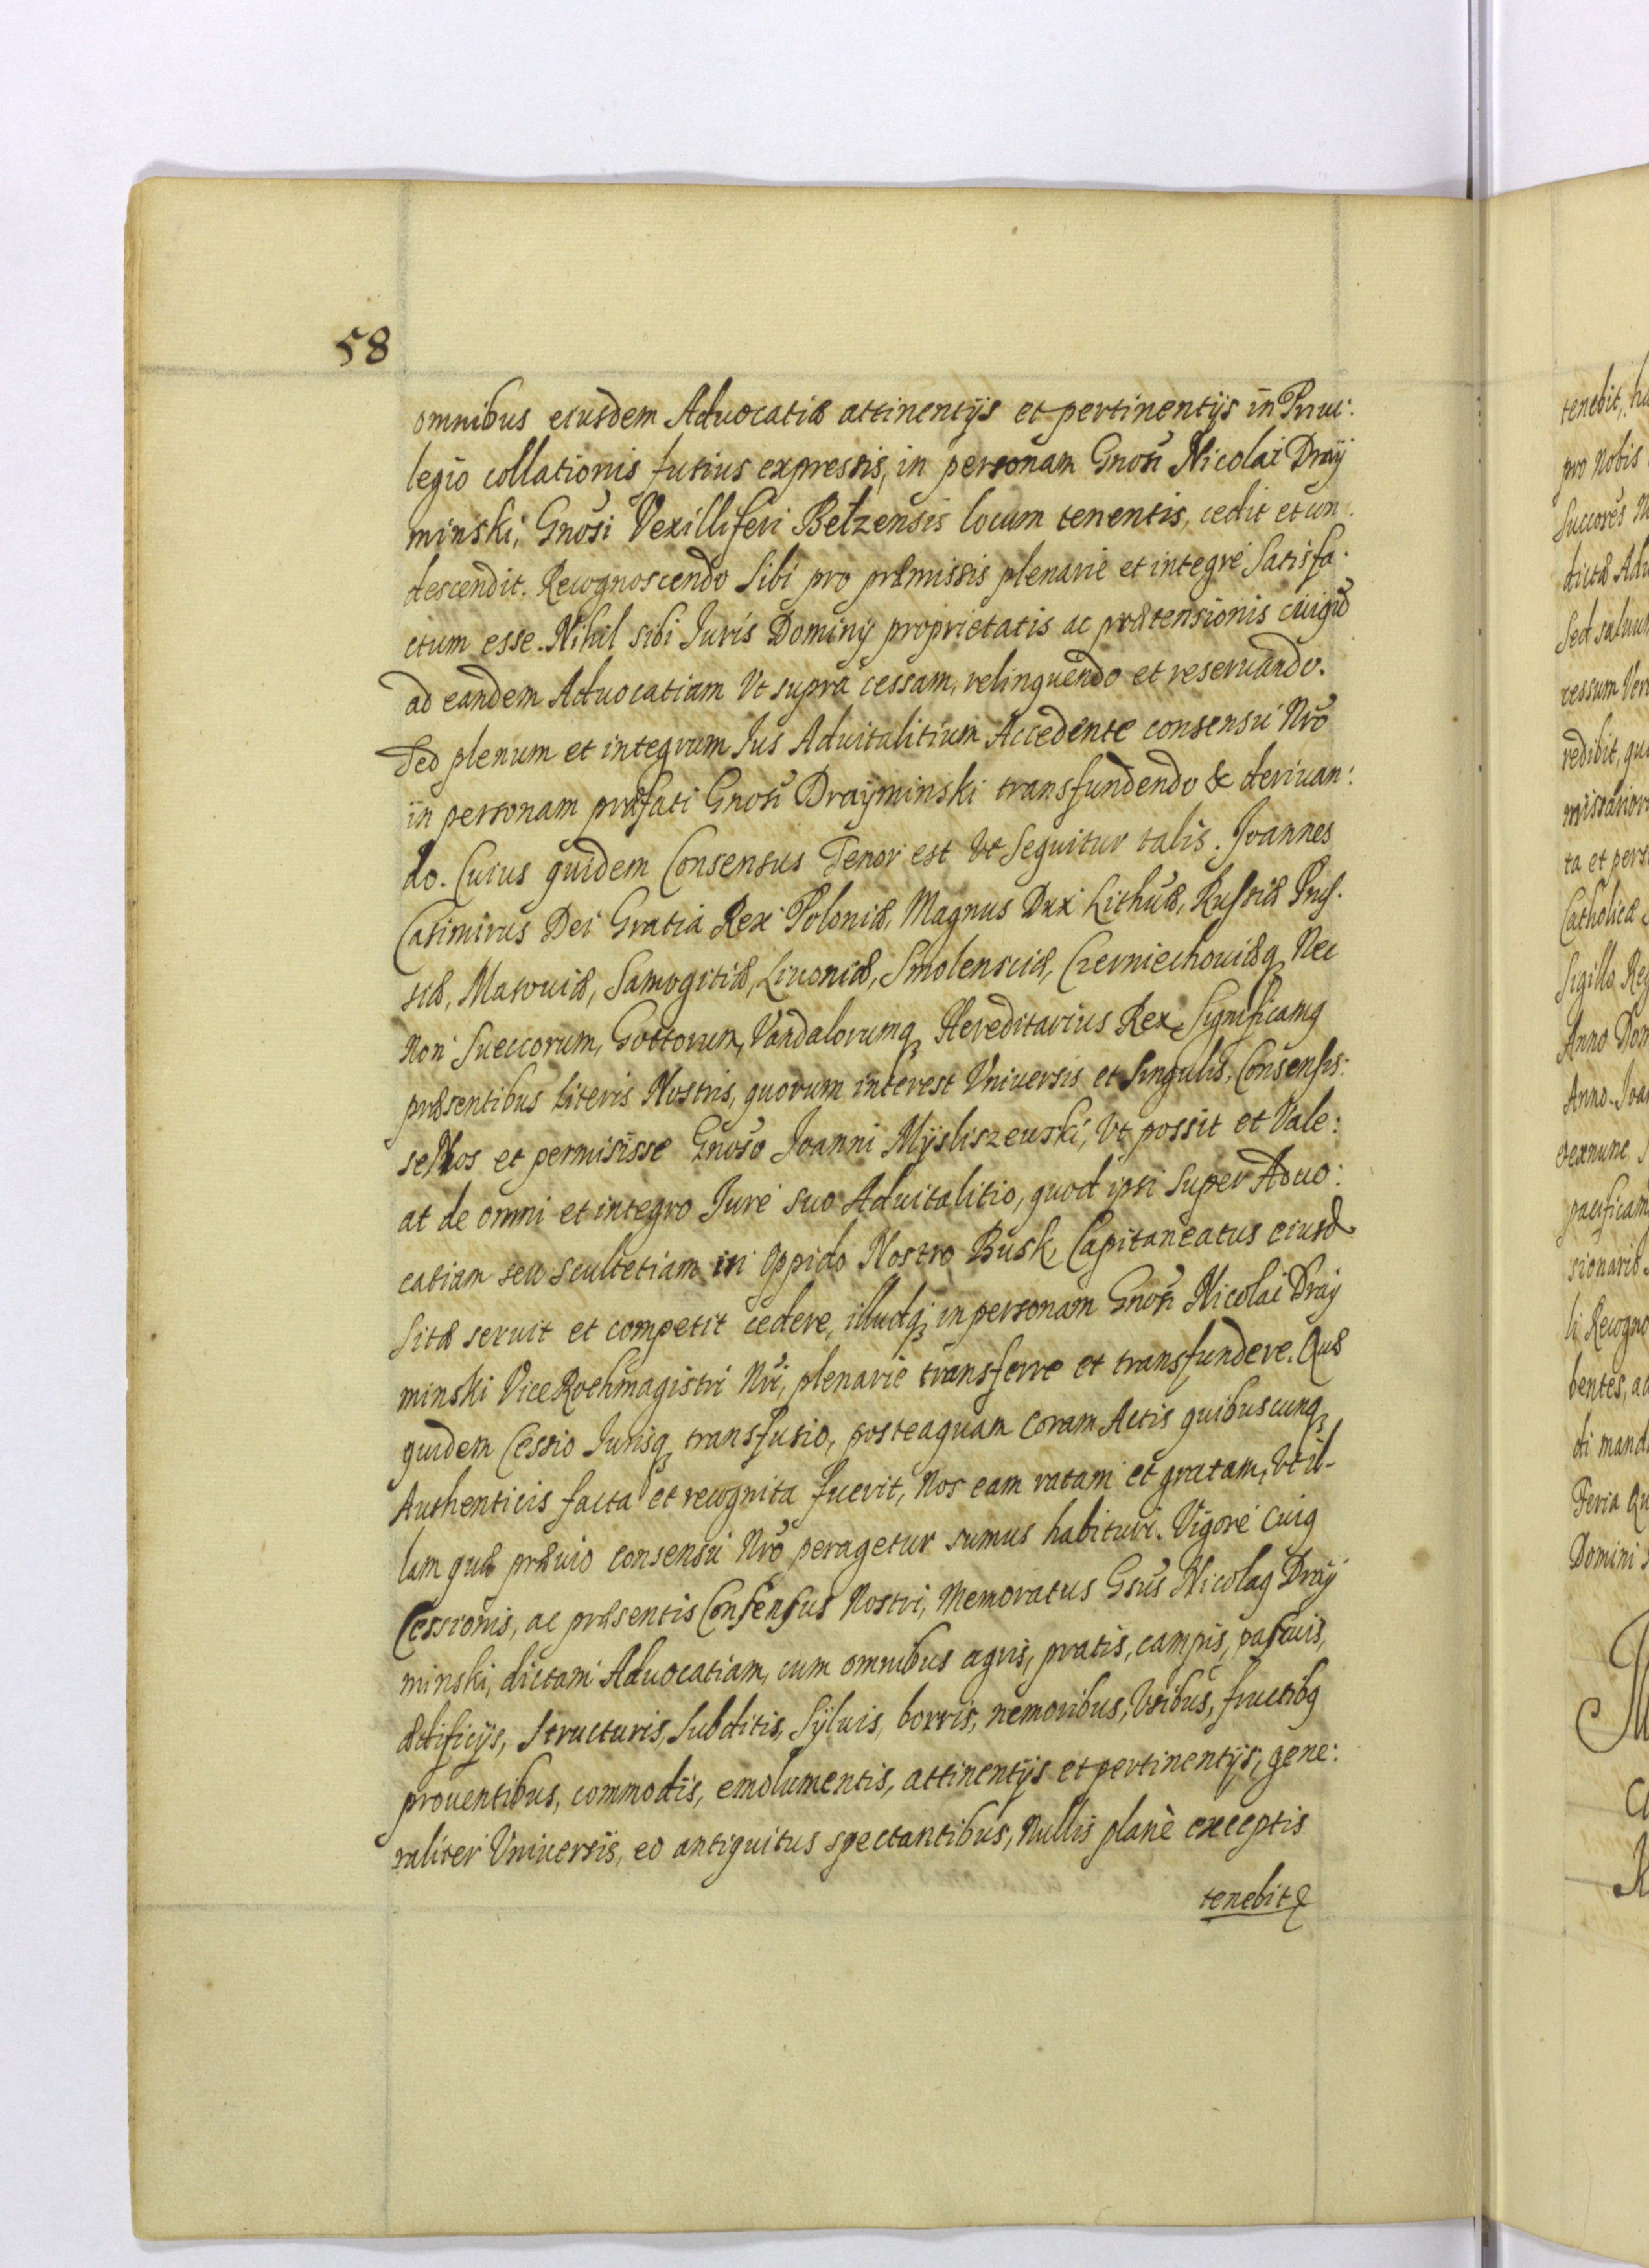 58
omnibus eiusdem Aduocatiæ attinentijs et pertinentijs in Priui:
legio collationis fusius expressis, in personam Gnosi Nicolai Dray
minski, Gnosi Vexilliferi Belzensis locum tenentis, cedit et con:
descendit. Recognoscendo Sibi pro præmissis plenarie et integre Satisfa:
ctum esse. Nihil sibi Juris Dominij proprietatis ac prætensionis
ad eandem Aduocatiam Vt supra cessam, relinquendo et reseruando.
Sed plenum et integrum Jus Aduitalitium Accedente consensu Nro
in personam præfati Gnosi Drayminski transfundendo & deriuan:
do. Cuius quidem Consensus Tenor est Vt Sequitur talis. Joannes
Casimirus Dei Gratia Rex Poloniæ, Magnus Dux Lithuæ, Russiæ Prus:
siæ, Masouiæ, Samogitiæ, Liuoniæ, Smolensciæ, Czerniechouiæq Nec
Non Sueccorum, Gottorum, Vandalorumq Hereditarius Rex. Significamq
præsentibus Literis Nostris, quorum interest Vniuersis et Singulis, Consensis:
se Nos et permisisse Gnoso Joanni Myśliszewski, Vt possit et Vale:
at de omni et integro Jure suo Aduitalitio, quod ipsi Super Aduo:
catiam seu scultetiam in Oppido Nostro Busk, Capitaneatus eiusd
Sitæ seruit et competit cedere, illudq in personam Gnosi Nicolai Dray
minski ViceRothmagistri Nri, plenarie transferre et transfundere. Quæ
quidem Cessio Jurisq transfusio, posteaquam coram Actis quibuscunq
Authenticis facta et recognita fuerit, Nos eam ratam et gratam, Vt il-
lam quæ præuio consensu Nro peragetur sumus habituri. Vigore Cuiq
Cessionis, ac præsentis Consensus Nostri, Memoratus Gsus Nicolaq Dray
minski, dictam Aduocatiam, cum omnibus agris, pratis, campis, pascuis,
ædificijs, Structuris, Subditis, Syluis, borris, nemoribus, Vsibus, fructibq
prouentibus, commodis, emolumentis, attinentijs et pertinentijs, gene:
raliter Vniuersis, eo antiquitus spectantibus, Nullis plane exceptis
tenebit
tenebit,
pro Nobis
Succores
dictæ
Sed saluum
cessum
redibit,
ta et
Catholicæ
Sigillo
Anno
Anno
li
bentes,
di
Feria
Domini